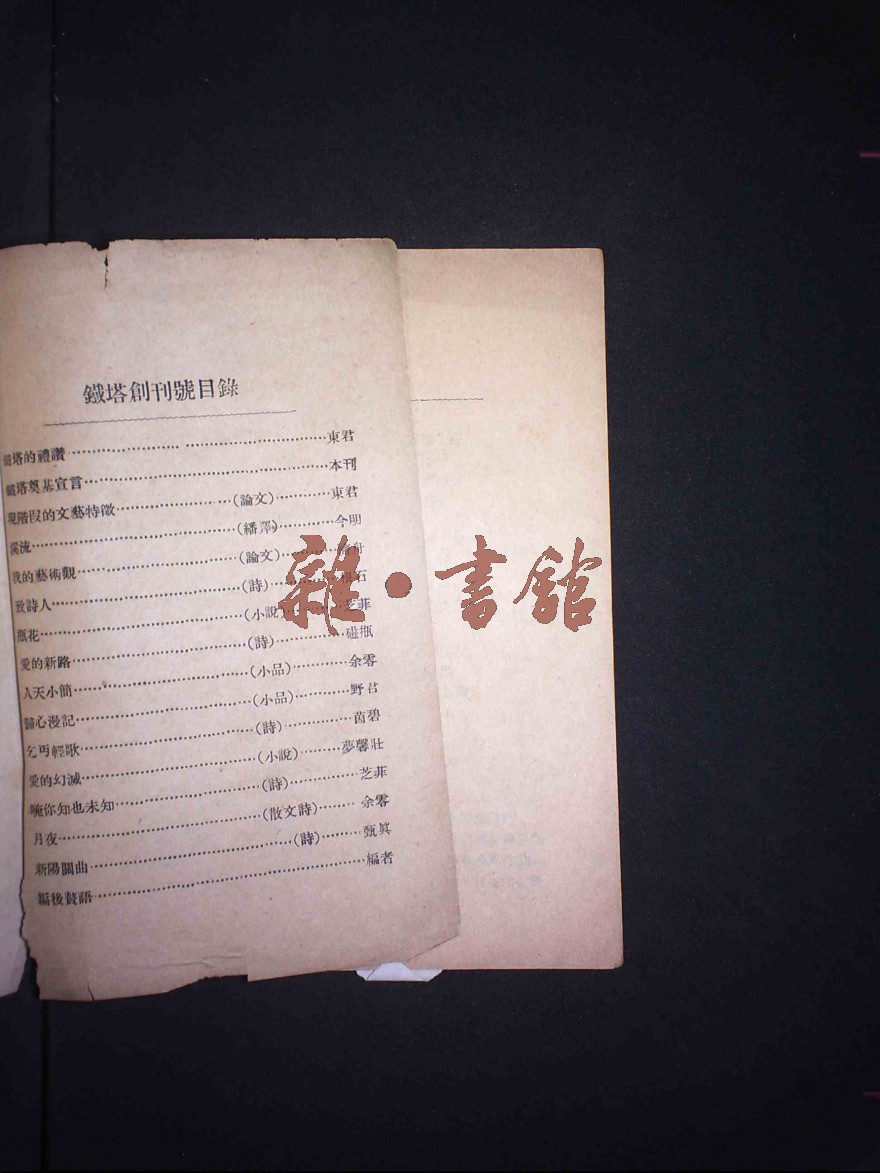 鐵塔創刊號目錄
鐵塔的禮讚……東君
鐵塔奠基宣言……本刊
現階段的文藝特徵……(論文)……東君
溪流……(繙譯)……今明
我的藝術觀……(論文)……舟
致詩人……(詩)……石
瓶花……(小說)……芝菲
愛的新路……(詩)……磁瓶
人天小簡……(小品)……余零
歸心漫記……(小品)……野苔
乞丐輕歌……(詩)……茵碧
愛的幻滅……(小說)……夢馨壯
唵你知也未知……(詩)……芝菲
月夜……(散文詩)……余零
新陽關曲……(詩)……甄眞
編後贅語……編者
雜·書館